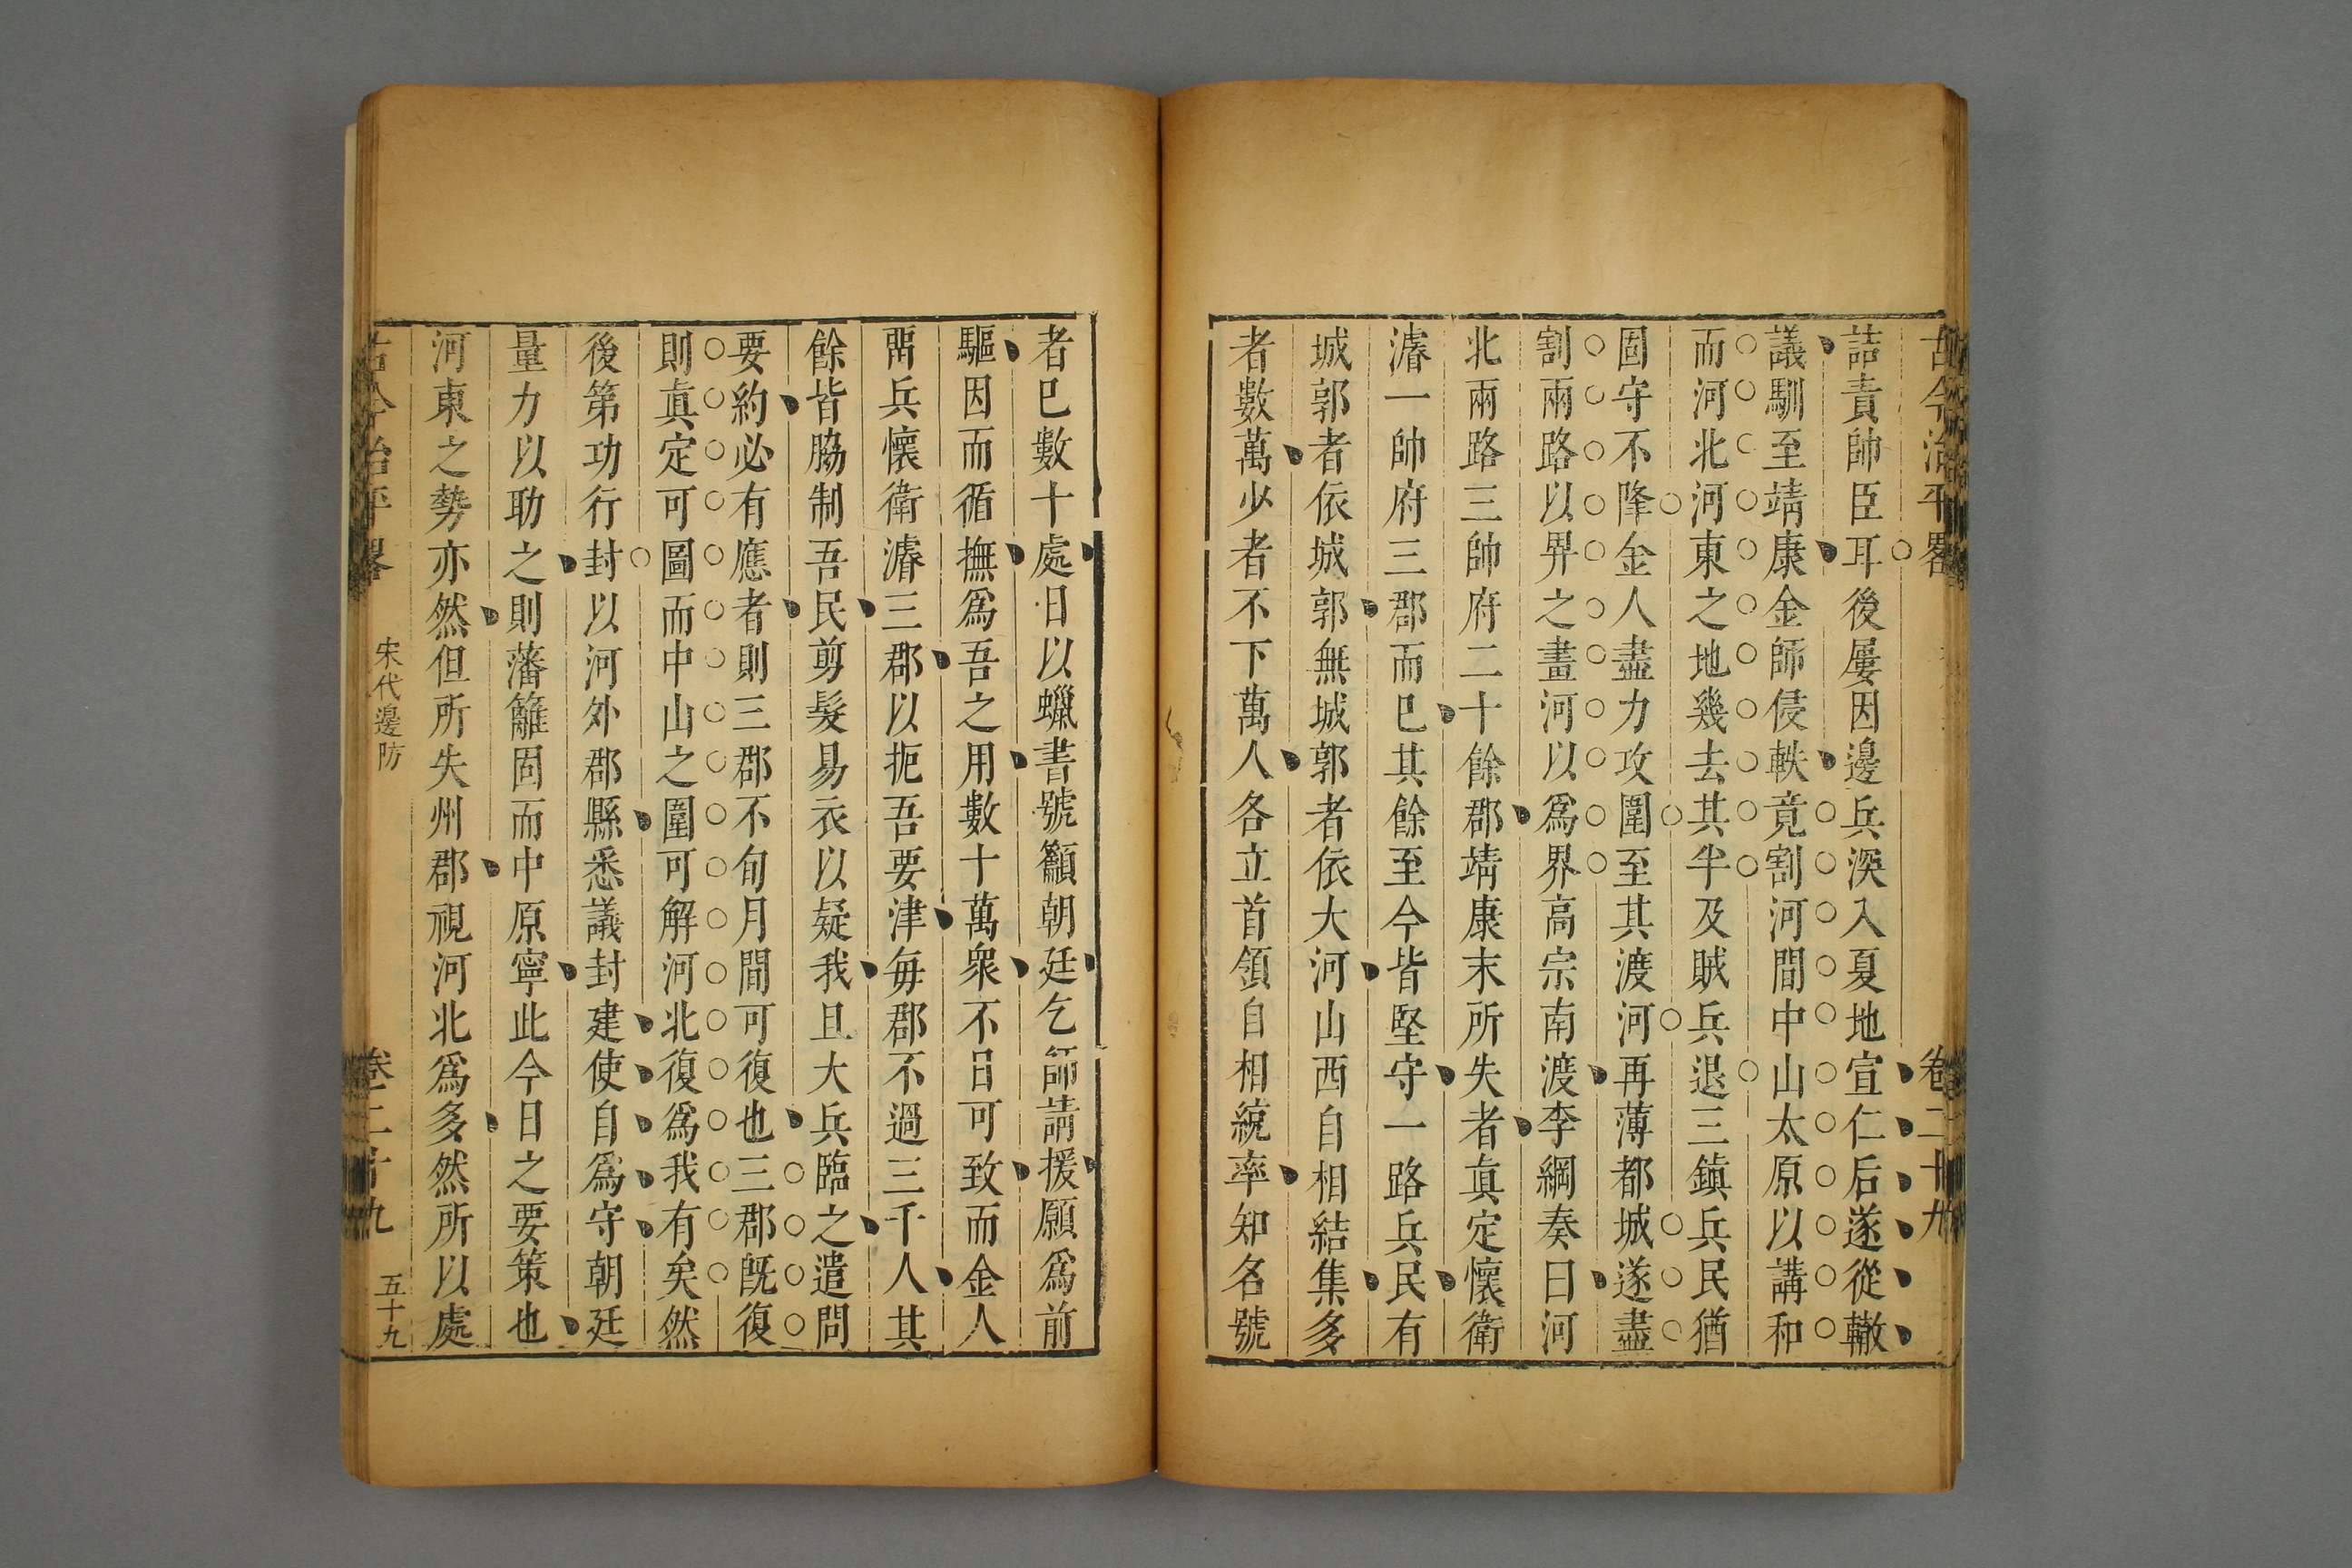 古今治平畧
卷二十九
詰責帥臣耳後屢因邊兵深入夏地宣仁后遂從轍
議馴至靖康金師侵軼竟割河間中山太原以講和
而河北河東之地幾去其半及賊兵退三鎮兵民猶
固守不降金人盡力攻圍至其渡河再薄都城遂盡
割兩路以畀之畫河以為界高宗南渡李綱奏曰河
北兩路三帥府二十餘郡靖康末所失者真定懷衛
濬一帥府三郡而已其餘至今皆堅守一路兵民有
城郭者依城郭無城郭者依大河山西自相結集多
者數萬少者不下萬人各立首領自相統率知名號
者已數十處日以蠟書號籲朝廷乞師請援願為前
驅因而循撫為吾之用數十萬衆不日可致而金人
畱兵懷衛濬三郡以扼吾要津每郡不過三千人其
餘皆脇制吾民剪髮易衣以疑我且大兵臨之遣問
要約必有應者則三郡不旬月間可復也三郡既復
則真定可圖而中山之圍可解河北復為我有矣然
後第功行封以河外郡縣悉議封建使自為守朝廷
量力以助之則藩籬固而中原寧此今日之要策也
河東之勢亦然但所失州郡視河北為多然所以處
古今治平畧
宋代邊防
卷二十九
五十九